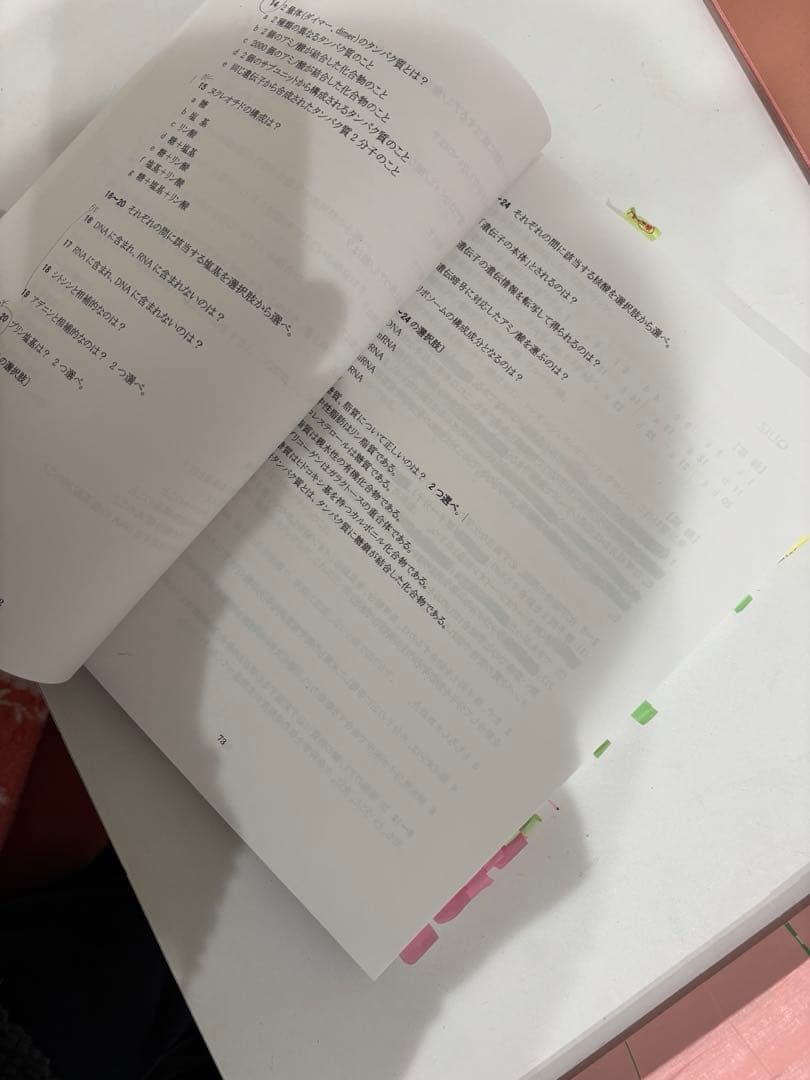 14 2量体(ダイマー, dimer)のタンパク質とは?
a 2種類の異なるタンパク質のこと
b 2個のアミノ酸が結合した化合物のこと
c 2000個のアミノ酸が結合した化合物のこと
d 2個のサブユニットから構成されるタンパク質のこと
e 同じ遺伝子から合成されたタンパク質2分子のこと
15 ヌクレオチドの構成は?
a 糖
b 塩基
c リン酸
d 糖+塩基
e 糖+リン酸
f 塩基+リン酸
g 糖+塩基+リン酸
16~20 それぞれの問に該当する塩基を選択肢から選べ。
16 DNAに含まれ, RNAに含まれないのは?
17 RNAに含まれ, DNAに含まれないのは?
18 シトシンと相補的なのは?
19 アデニンと相補的なのは? 2つ選べ。
20 プリン塩基は? 2つ選べ。
の選択肢]
~24 それぞれの問に該当する核酸を選択肢から選べ。
「遺伝子の本体」とされるのは?
遺伝子の遺伝情報を転写して得られるのは?
遺伝暗号に対応したアミノ酸を運ぶのは?
リボソームの構成成分となるのは?
~24の選択肢]
DNA
mRNA
RNA
RNA
RNA
糖質, 脂質について正しいのは? 2つ選べ。
性脂肪はリン脂質である。
コレステロールは糖質である。
脂質は親水性の有機化合物である。
グリコーゲンはガラクトースの重合体である。
糖質はヒドロキシ基を持つカルボニル化合物である。
タンパク質とは, タンパク質に糖鎖が結合した化合物である。
73